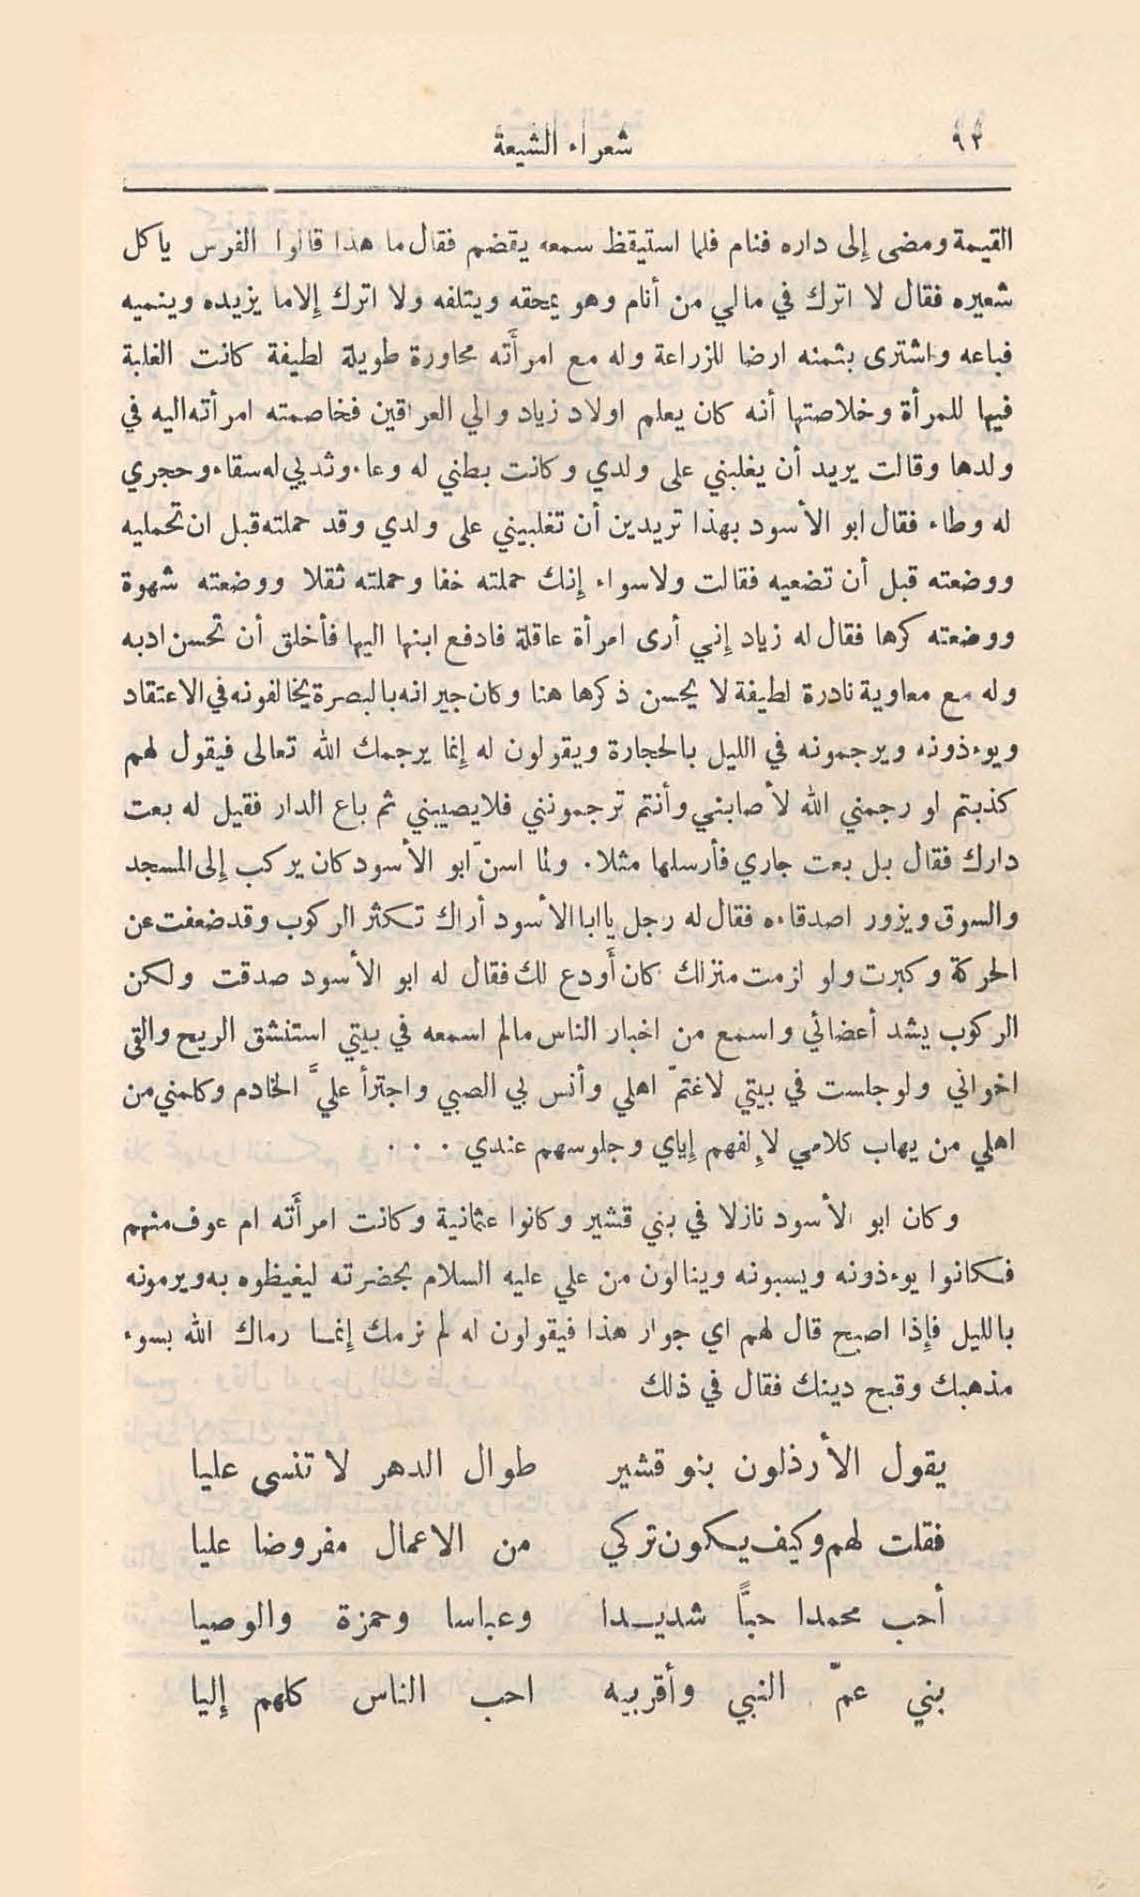 ٩٣
شعراء الشيعة
القيمة ومضى إلى داره فنام فلما استيقظ سمعه يقضم فقال ما هذا قالوا الفرس ياكل
شعيره فقال لا اترك في مالي من أنام وهو يمحقه ويتلفه ولا اترك إلاما يزيده وينميه
فباعه واشترى بثمنه ارضا للزراعة وله مع امرأَته محاورة طويلة لطيفة كانت الغلبة
فيها للمرأة وخلاصتها أنه كان يعلم اولاد زياد والي العراقين فخاصمته امرأته اليه في
ولدها وقالت يريد أن يغلبني على ولدي وكانت بطني له وعاء وثديي له سقاء وحجري
له وطاء فقال ابو الأسود بهذا تريدين أن تغلبيني على ولدي وقد حملته قبل ان تحمليه
ووضعته قبل أن تضعيه فقالت ولاسواء إنك حملته خفا وحملته ثقلا ووضعته شهوة
ووضعته كرها فقال له زياد إني أرى امرأة عاقلة فادفع ابنها اليها فأخلق أن تحسن ادبه
وله مع معاوية نادرة لطيفة لا يحسن ذكرها هنا وكان جيرانه بالبصرة يخالفونه في الاعتقاد
ويوءذونه ويرجمونه في الليل بالحجارة ويقولون له إنما يرجمك الله تعالى فيقول لهم
كذبتم او رجمني الله لأصابني وأنتم ترجمونني فلايصيبني ثم باع الدار فقيل له بعت
دارك فقال بل بعت جاري فأرسلها مثلا . ولما اسنّ ابو الأسود كان يركب إلى المسجد
والسوق ويزور اصدقاءه فقال له رجل ياابا الأسود أراك تكثر الركوب وقد ضعفت عن
الحركة وكبرت ولو لزمت منزلك كان أَودع لك فقال له ابو الأسود صدقت ولكن
الركوب يشد أعضائي واسمع من اخبار الناس مالم اسمعه في بيتي استنشق الريح والقى
اخواني ولو جلست في بيتي لاغتمّ اهلي وأنس بي الصبي واجترأ عليَّ الخادم وكلمني من
اهلي من يهاب كلامي لإلفهم إياي وجلوسهم عندي . . .
وكان ابو الأسود نازلا في بني قشير وكانوا عثمانية وكانت امرأَته ام عوف منهم
فكانوا يوءذونه ويسبونه وينالون من علي عليه السلام بحضرته ليغيظوه به ويرمونه
بالليل فإذا اصبح قال لهم اي جوار هذا فيقولون له لم نرمك إنما رماك الله بسوء
مذهبك وقبح دينك فقال في ذلك
يقول الأرذلون بنو قشير طوال الدهر لا تنسى عليا
فقلت لهم وكيف يكون تركي من الاعمال مفروضا عليا
أحب محمدا حبًّا شديدا وعباسا وحمزة والوصيا
بني عمّ النبي وأقربيه احب الناس كلهم إليا